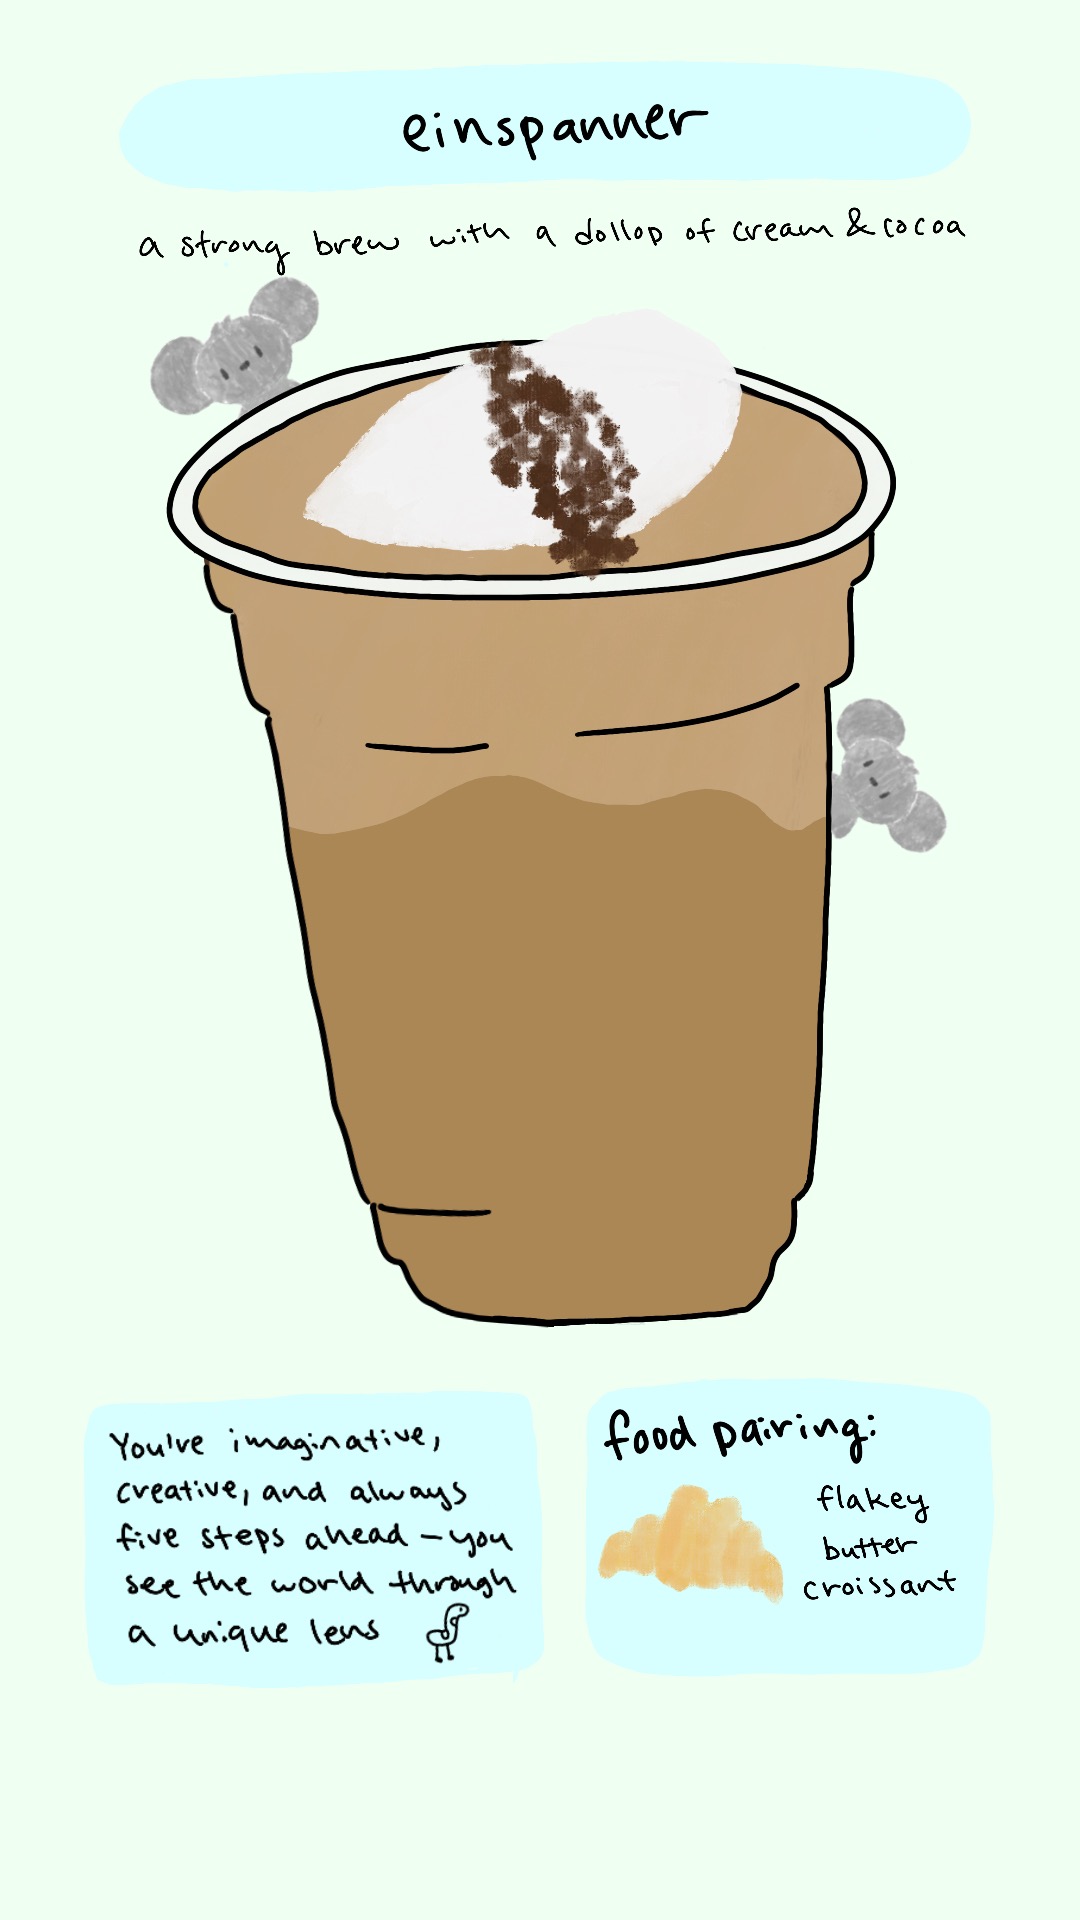 einspanner
a strong brew with a dollop of cream & cocoa
You're imaginative,
creative, and always
five steps ahead – you
see the world through
a unique lens
food pairing:
flakey
butter
croissant